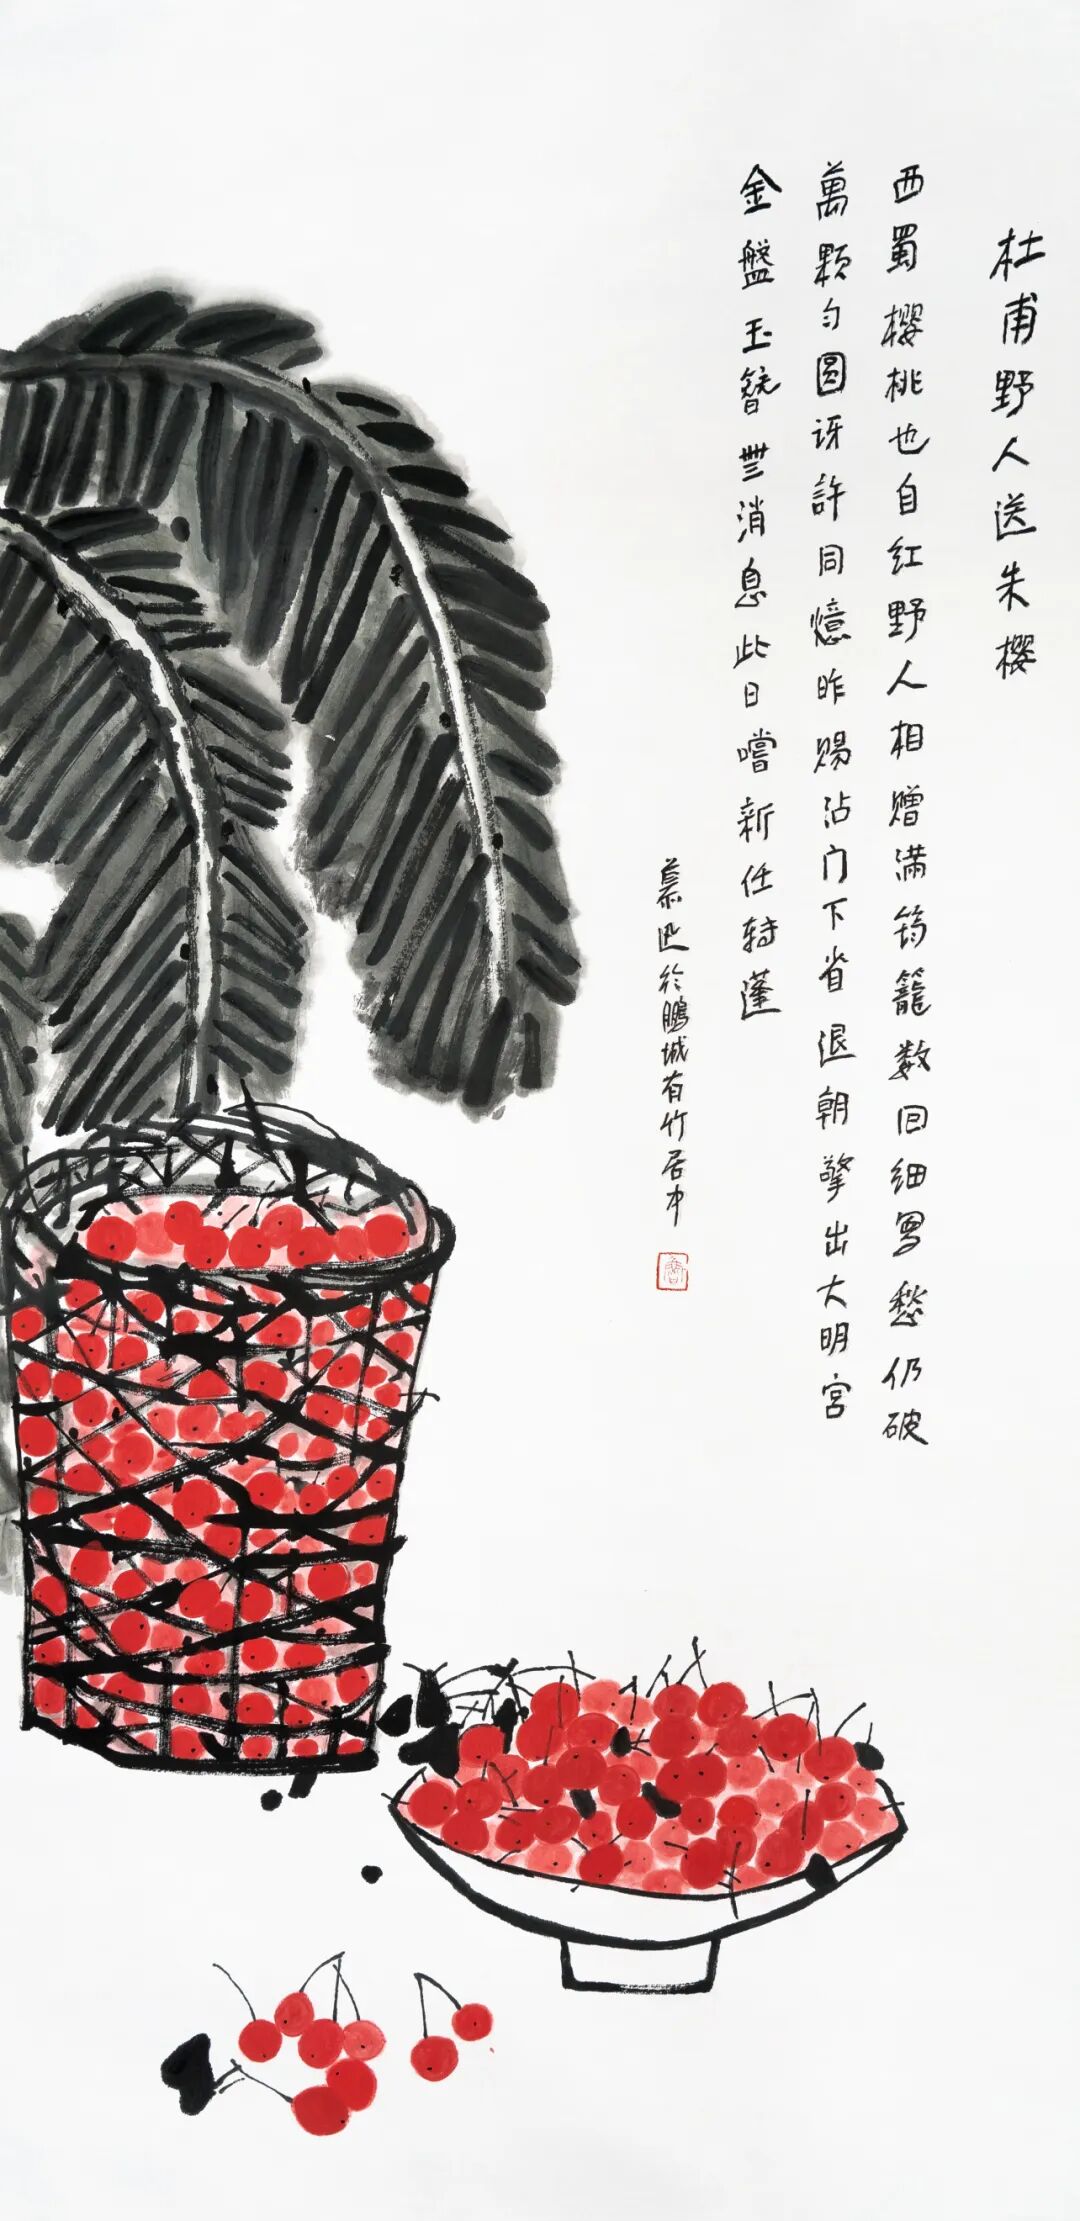 杜甫野人送朱櫻
西蜀櫻桃也自红野人相赠满筠籠数回细写愁仍破
萬颗匀圆讶許同憶昨赐沾门下省退朝擎出大明宫
金盤玉簪無消息此日嚐新任转蓬
慕迅於鹏城有竹居中